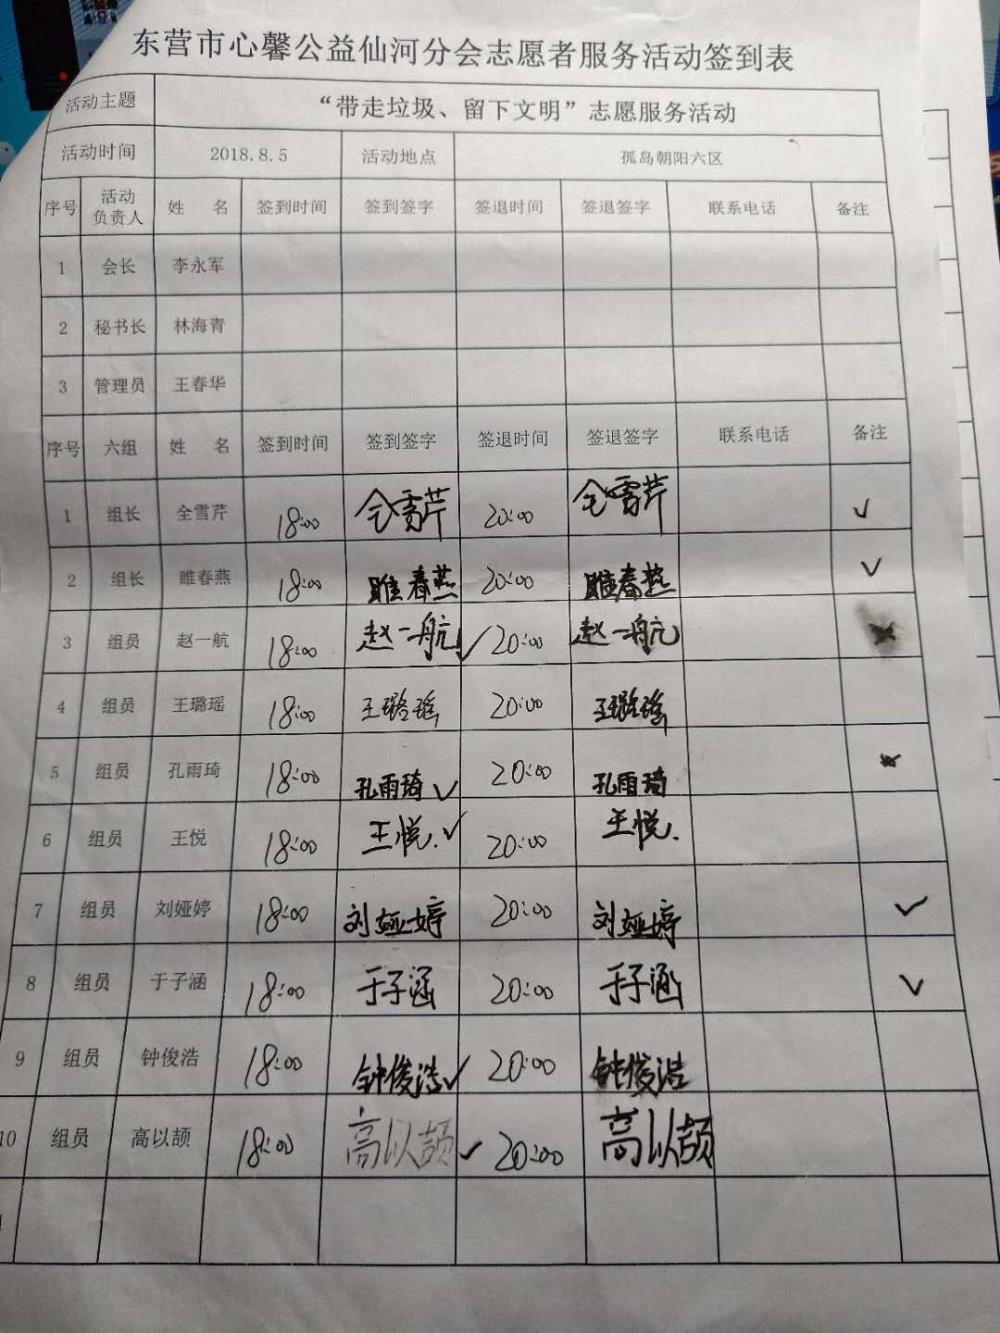 东营市心馨公益仙河分会志愿者服务活动签到表
活动主题 “带走垃圾、留下文明”志愿服务活动
活动时间 2018.8.5 活动地点 孤岛朝阳六区
序号 活动负责人 姓 名 签到时间 签到签字 签退时间 签退签字 联系电话 备注
1 会长 李永军
2 秘书长 林海青
3 管理员 王春华
序号 六组 姓 名 签到时间 签到签字 签退时间 签退签字 联系电话 备注
1 组长 全雪芹 18:00 仝雪芹 20:00 仝雪芹 ✓
2 组长 睢春燕 18:00 睢春燕 20:00 睢春燕 ✓
3 组员 赵一航 18:00 赵一航 ✓ 20:00 赵一航
4 组员 王璐瑶 18:00 王璐瑶 20:00 王璐瑶
5 组员 孔雨琦 18:00 孔雨琦 ✓ 20:00 孔雨琦
6 组员 王悦 18:00 王悦. ✓ 20:00 王悦.
7 组员 刘娅婷 18:00 刘娅婷 20:00 刘娅婷 ✓
8 组员 于子涵 18:00 于子涵 20:00 于子涵 ✓
9 组员 钟俊浩 18:00 钟俊浩 ✓ 20:00 钟俊浩
10 组员 高以颉 18:00 高以颉 ✓ 20:00 高以颉